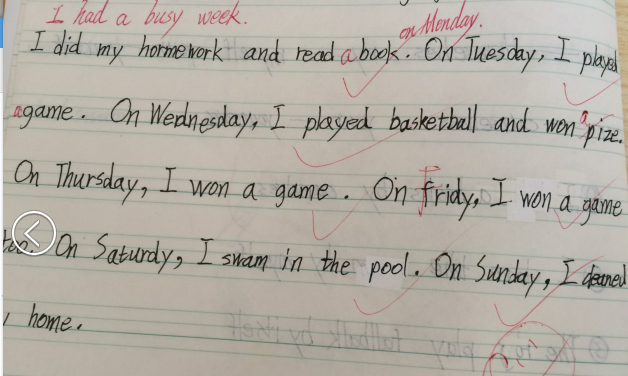 I had a busy week.
on Monday.
I did my homework and read a book. On Tuesday, I played
a game. On Wednesday, I played basketball and won a pize.
On Thursday, I won a game. On Fridy, I won a game
too. On Saturdy, I swam in the pool. On Sunday, I cleaned
home.
play
by itself